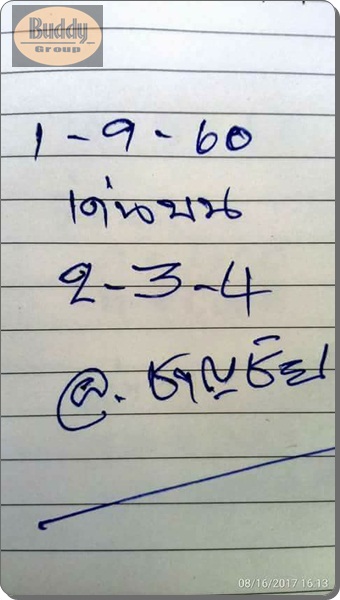 Buddy
Group
1-9-60
เด่นบน
2-3-4
อ. ชาญชัย
08/16/2017 16:13